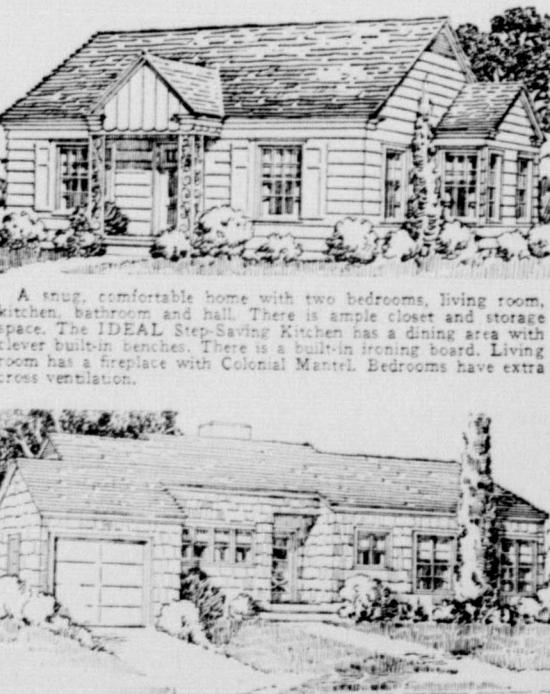 A snug, comfortable home with two bedrooms, living room,
kitchen, bathroom and hall. There is ample closet and storage
space. The IDEAL Step-Saving Kitchen has a dining area with
clever built-in benches. There is a built-in ironing board. Living
room has a fireplace with Colonial Mantel. Bedrooms have extra
cross ventilation.